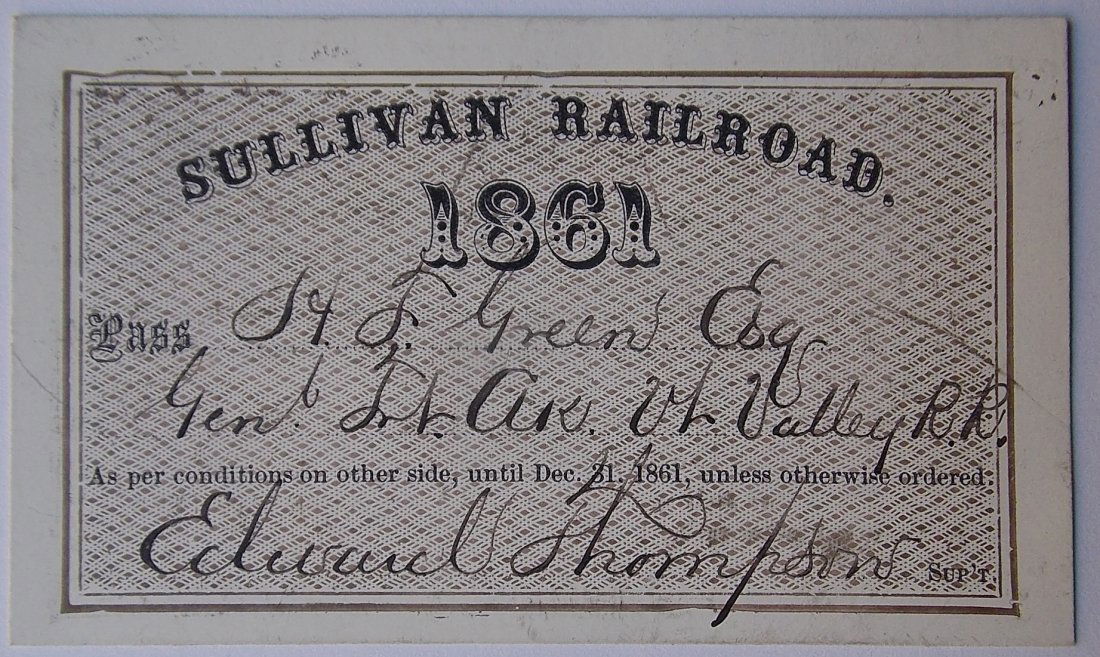 SULLIVAN RAILROAD.
1861
Pass H. F. Green Esq
Genl. Frt. Vt Valley R.R.
As per conditions on other side, until Dec. 31, 1861, unless otherwise ordered.
Edward Thompson SUP'T.